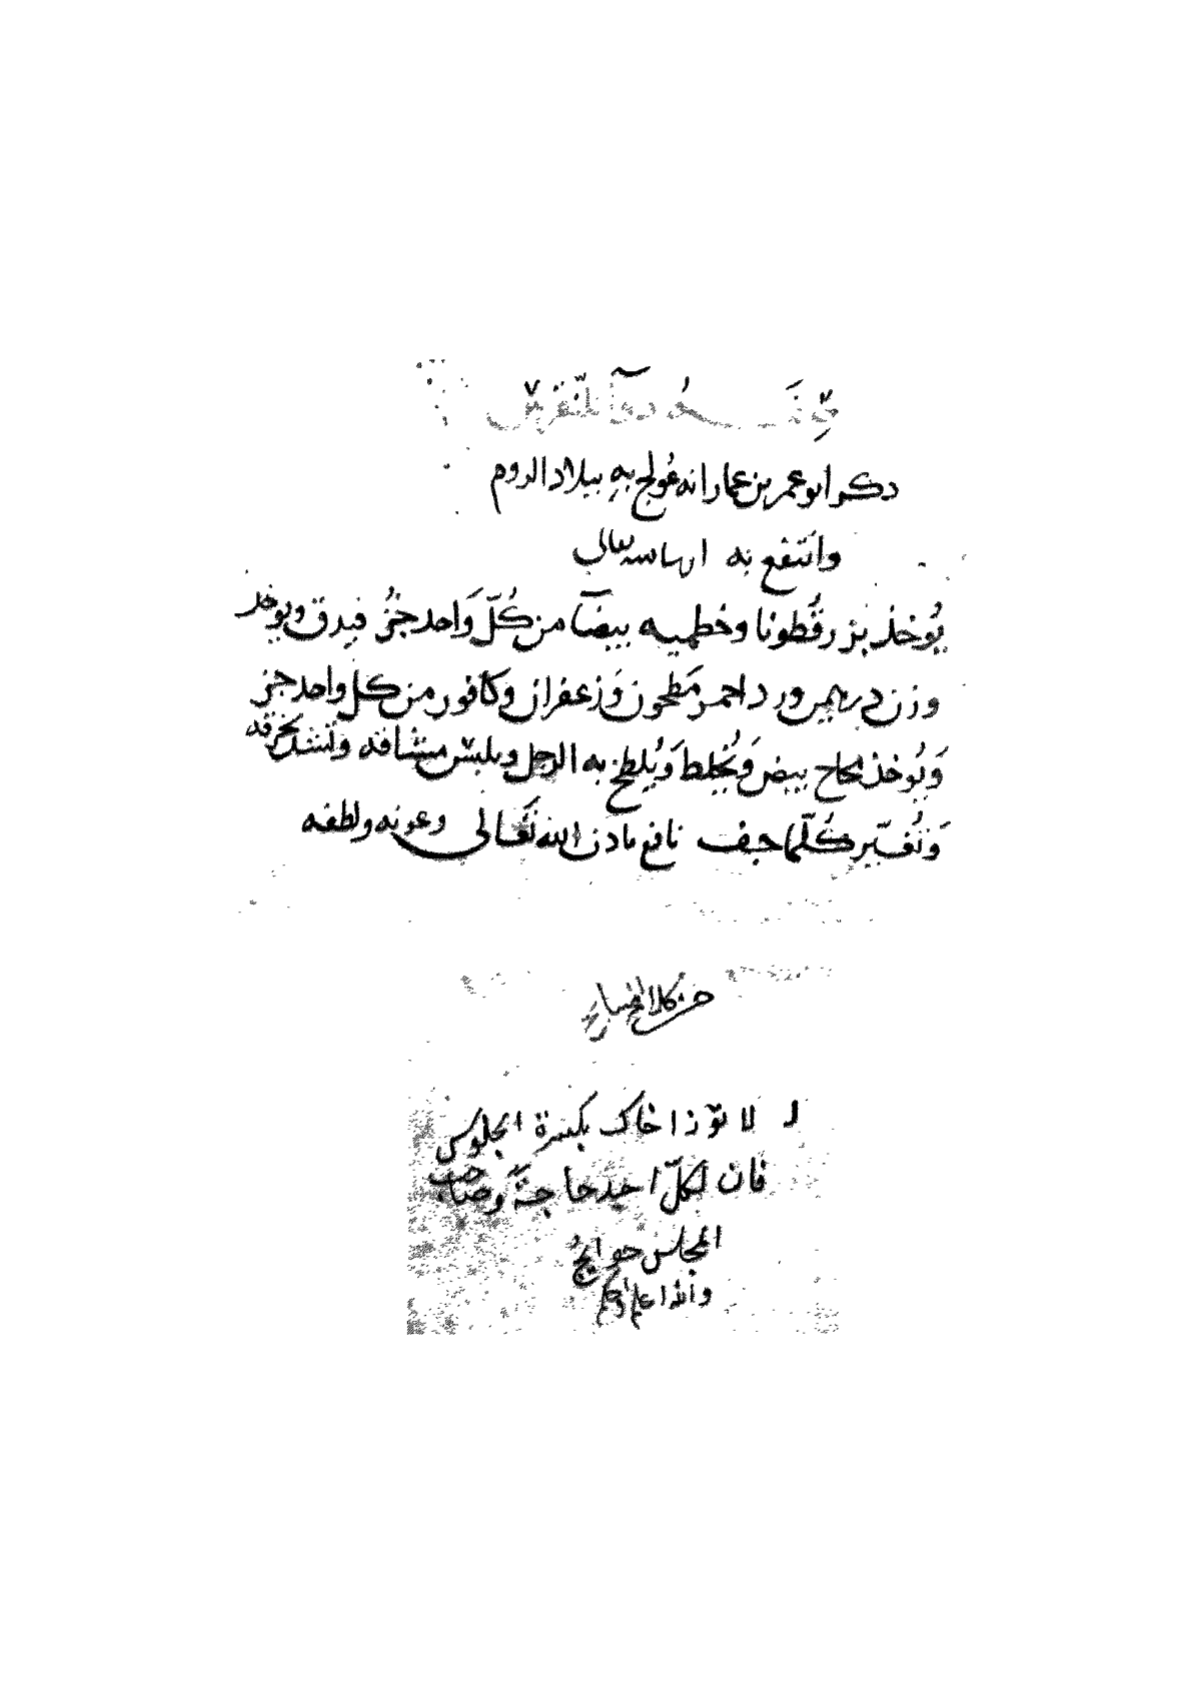 نسخة دوآ للنقرس
ذكر ابو عمر بن عمار انه عُولج بهِ ببلاد الروم
وانتفع به تعالى
يُوخذ بزر قُطونا وخطميه بيضآ من كُلّ وَاحد جزُ فيدق ويوخذ
وزن درهمين ورد احمر مَطحون وَزعفران وكافور من كل واحد جز
وَيُوخذ محاح بيض وَيُخلط وَيُلطخ به الرجل ويلبس مشاقه وتشد بخرقه
وَتُغيّر كُلّما جف نافع باذن الله تَعَالى وعونه ولطفه
لا تؤذ اخاك بكثرة الجلوس
فان لكلّ احد حاجة وصاحب
المجلس حوايجُ
والله اعلم